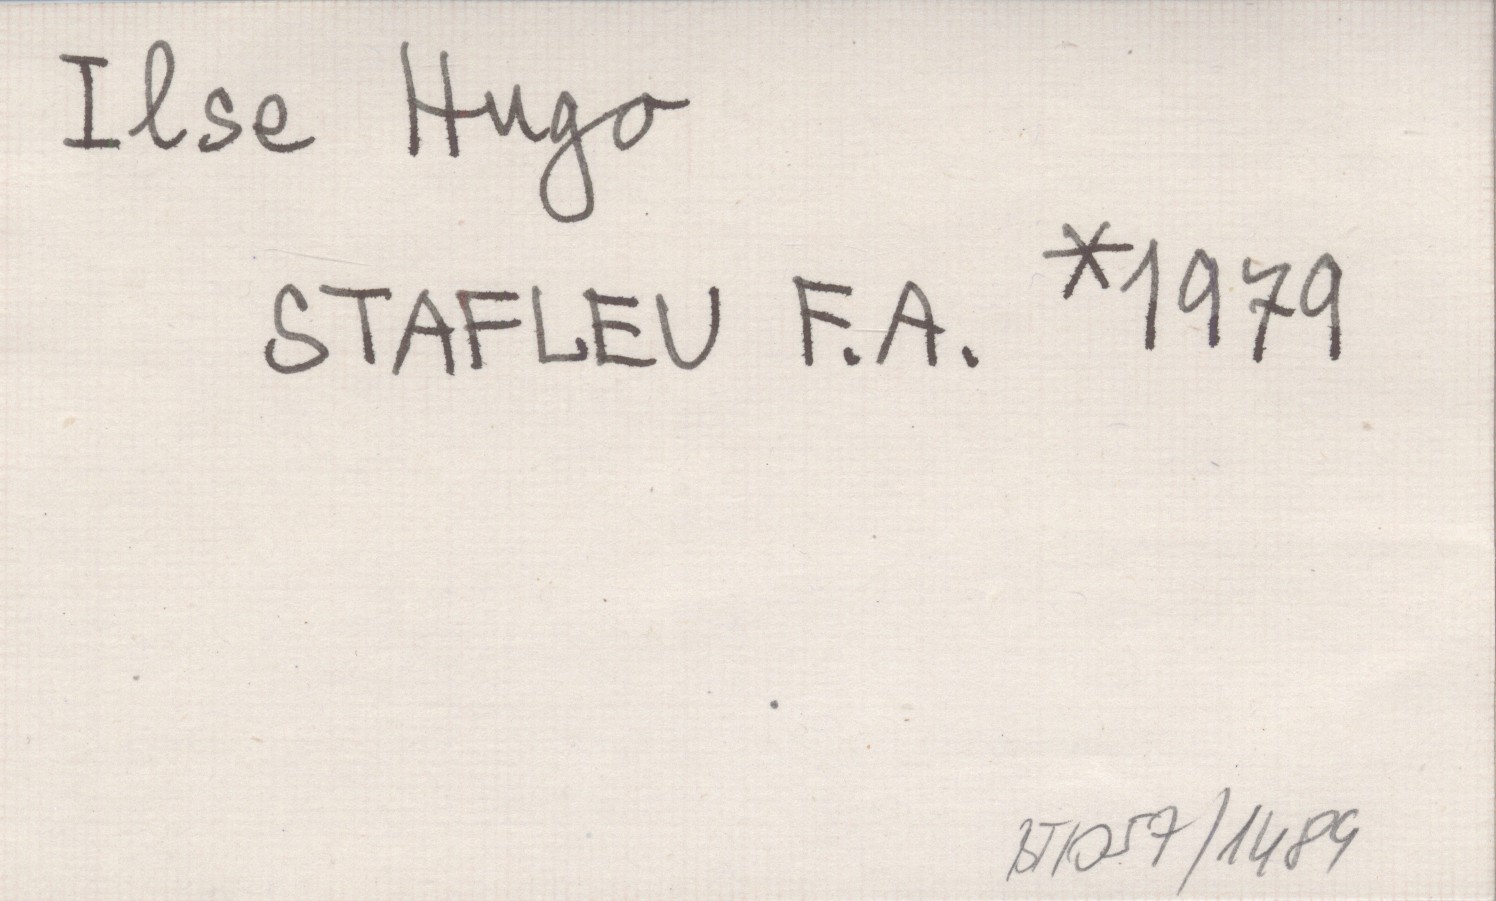 Ilse Hugo
STAFLEU F.A. *1979
/1489